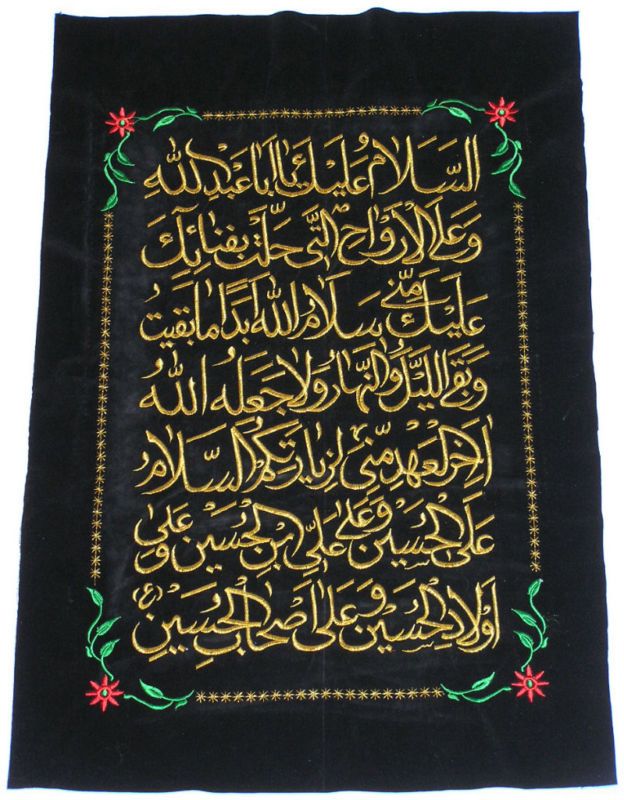 السَّلَامُ عَلَيْكَ يَا أَبَا عَبْدِ اللهِ
وَعَلَى الْأَرْوَاحِ الَّتِي حَلَّتْ بِفِنَائِكَ
عَلَيْكَ مِنِّي سَلَامُ اللهِ أَبَدًا مَا بَقِيتُ
وَبَقِيَ اللَّيْلُ وَالنَّهَارُ وَلَا جَعَلَهُ اللهُ
آخِرَ الْعَهْدِ مِنِّي لِزِيَارَتِكُمُ السَّلَامُ
عَلَى الْحُسَيْنِ وَعَلَى عَلِيِّ ابْنِ الْحُسَيْنِ وَعَلَى
أَوْلَادِ الْحُسَيْنِ وَعَلَى أَصْحَابِ الْحُسَيْنِ (ع)